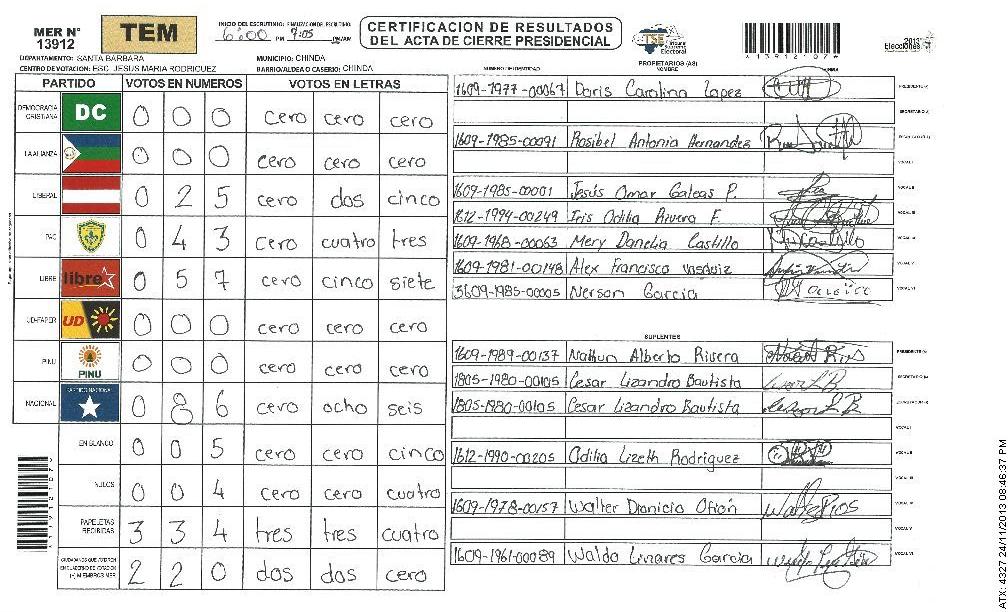 MER N° 13912
TEM
INICIO DEL ESCRUTINIO: FINALIZACION DEL ESCRUTINIO:
6:00 PM 9:05 PM/AM
CERTIFICACION DE RESULTADOS
DEL ACTA DE CIERRE PRESIDENCIAL
TSE Tribunal Supremo Electoral
*13912107*
2013 Elecciones
DEPARTAMENTO: SANTA BARBARA
MUNICIPIO: CHINDA
CENTRO DE VOTACION: ESC. JESUS MARIA RODRIGUEZ
BARRIO/ALDEA O CASERIO: CHINDA
PARTIDO VOTOS EN NUMEROS VOTOS EN LETRAS
DEMOCRACIA CRISTIANA DC 0 0 0 cero cero cero
LA ALIANZA 0 0 0 cero cero cero
LIBERAL 0 2 5 cero dos cinco
PAC 0 4 3 cero cuatro tres
LIBRE libre 0 5 7 cero cinco siete
UD-FAPER UD 0 0 0 cero cero cero
PINU PINU 0 0 0 cero cero cero
NACIONAL PARTIDO NACIONAL 0 8 6 cero ocho seis
EN BLANCO 0 0 5 cero cero cinco
NULOS 0 0 4 cero cero cuatro
PAPELETAS RECIBIDAS 3 3 4 tres tres cuatro
CIUDADANOS QUE VOTARON EN CUADERNO DE VOTACION (+) MIEMBROS MER 2 2 0 dos dos cero
PROPIETARIOS (AS)
NUMERO DE IDENTIDAD NOMBRE FIRMA
1609-1977-00067 Doris Carolina Lopez PRESIDENTE(A)
SECRETARIO(A)
1609-1985-00091 Rosibel Antonia Hernandez ESCRUTADOR(A)
VOCAL I
1609-1985-00001 Jesús Omar Galeas P. VOCAL II
1612-1994-00249 Iris Odilia Rivera F. VOCAL III
1609-1968-00063 Mery Danelia Castillo VOCAL IV
1609-1981-00148 Alex Francisco Vasquiz VOCAL V
3609-1985-00005 Nerson Garcia VOCAL VI
SUPLENTES
1609-1989-00137 Nathun Alberto Rivera PRESIDENTE(A)
1805-1980-00105 Cesar Lizandro Bautista SECRETARIO(A)
1805-1980-00105 Cesar Lizandro Bautista ESCRUTADOR(A)
VOCAL I
1612-1990-00205 Odilia Lizeth Rodriguez VOCAL II
VOCAL III
1609-1978-00157 Walter Dionicio VOCAL IV
VOCAL V
1609-1961-00089 Waldo Linares Garcia VOCAL VI
ATX: 4327 24/11/2013 08:46:37 PM